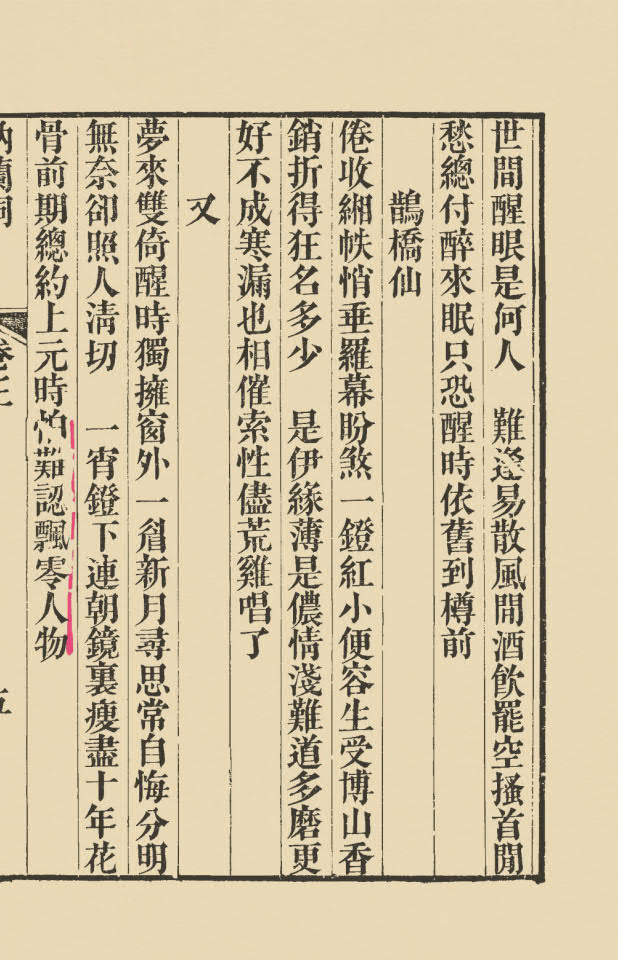 世間醒眼是何人　難逢易散風間酒飲罷空搔首閒
愁總付醉來眠只恐醒時依舊到樽前
鵲橋仙
倦收緗帙悄垂羅幕盼煞一鐙紅小便容生受博山香
銷折得狂名多少　是伊緣薄是儂情淺難道多磨更
好不成寒漏也相催索性儘荒雞唱了
又
夢來雙倚醒時獨擁窗外一眉新月尋思常自悔分明
無奈卻照人清切　一宵鐙下連朝鏡裏瘦盡十年花
骨前期總約上元時怕難認飄零人物
納蘭詞
卷三
五